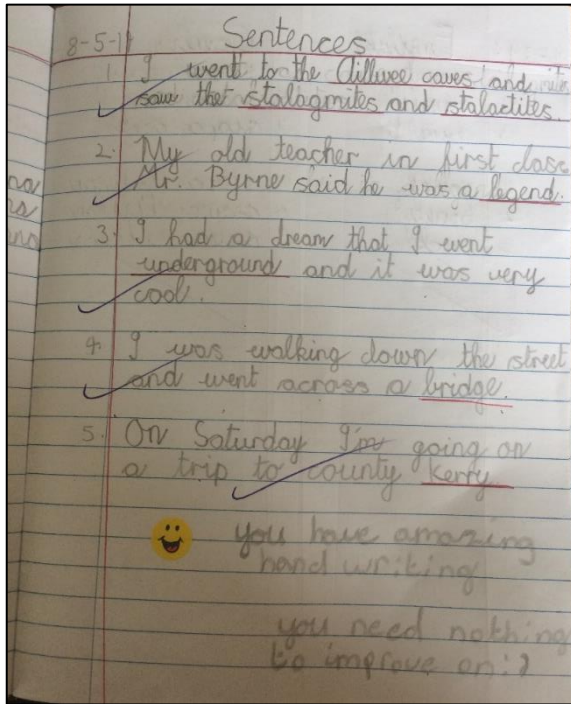 8-5-19 Sentences
1. I went to the Aillwee caves and
saw the stalagmites and stalactites.
2. My old teacher in first class
Mr. Byrne said he was a legend.
3. I had a dream that I went
underground and it was very
cool.
4. I was walking down the street
and went across a bridge.
5. On Saturday I'm going on
a trip to county Kerry
you have amazing
hand writing
you need nothing
to improve on :)